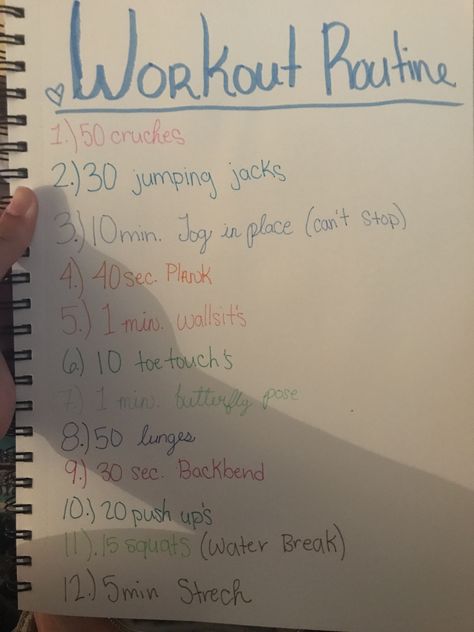 Workout Routine
1.) 50 cruches
2.) 30 jumping jacks
3.) 10 min. Jog in place (can't stop)
4.) 40 sec. Plank
5.) 1 min. wallsit's
6.) 10 toe touch's
7.) 1 min. butterfly pose
8.) 50 lunges
9.) 30 sec. Backbend
10.) 20 push up's
11.) 15 squats (Water Break)
12.) 5 min Strech